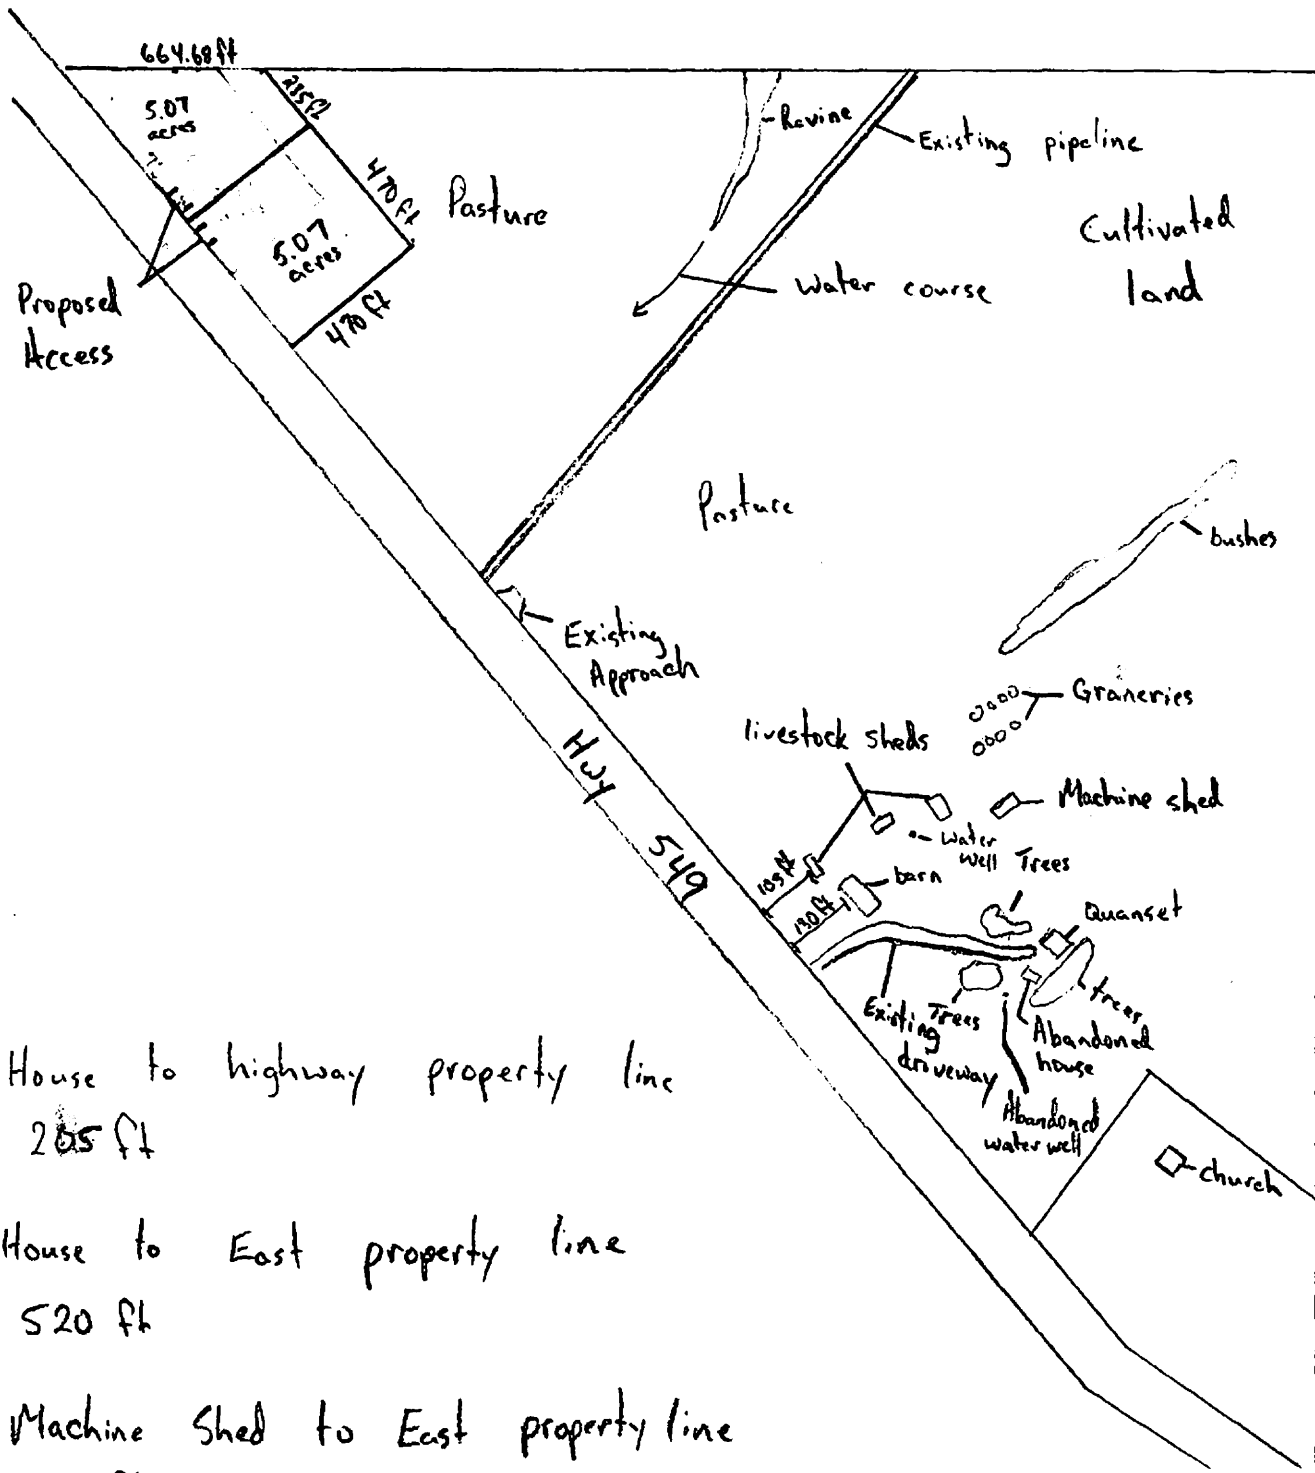 664.68 ft
5.07
acres
235 ft
470 ft
Pasture
5.07
acres
470 ft
Proposed
Access
Ravine
Existing pipeline
Water course
Cultivated
land
Pasture
bushes
Existing
Approach
Graneries
livestock sheds
Machine shed
water
well
Trees
Hwy 549
105 ft
barn
130 ft
Quanset
trees
Existing
driveway
Trees
Abandoned
house
Abandoned
water well
church
House to highway property line
205 ft
House to East property line
520 ft
Machine Shed to East property line